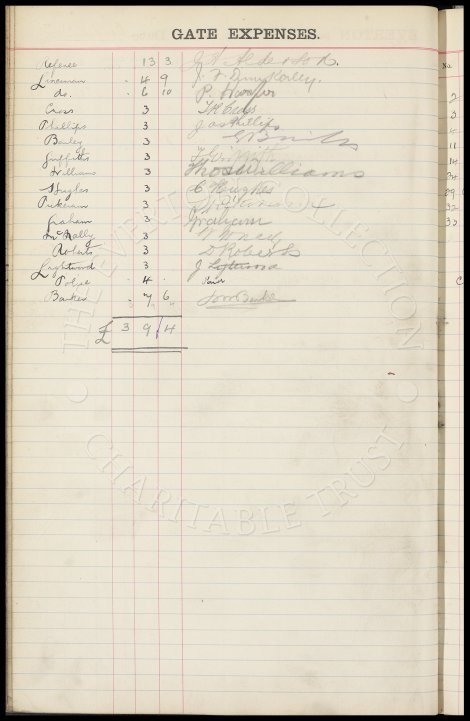 GATE EXPENSES.
Referee 13 3
Linesman 4 9
do. 6 10 P.
Cross 3 T H Cross
Phillips 3 Jas Phillips
Bailey 3
Griffiths 3 Griffiths
Williams 3 Thos Williams
Hughes 3 C Hughes
Pickering 3
Graham 3 J Graham
McNally 3
Roberts 3 D Roberts
Lightwood 3 J
Police 4 Paid
Barker 7 6
£ 3 9 4
THE EVERTON COLLECTION
CHARITABLE TRUST
No.
2
3
4
11
14
24
29
32
33